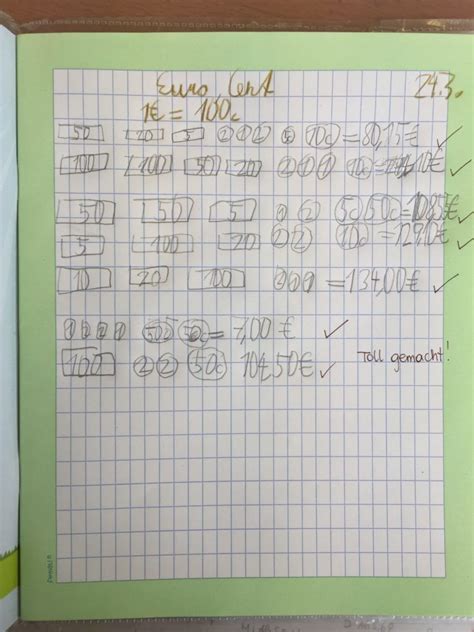 Euro Cent 24.3.
1€ = 100c
50 20 5 10c = 80,15€ ✓
100 100 50 20 2 1 1 10c ✓
50 50 5 2 5c 50c = 108,55€ ✓
5 100 20 2 2 10c = 129,10€ ✓
10 20 100 = 134,00€ ✓
50c = 7,00€ ✓
100 2 2 50c 104,50€ ✓ Toll gemacht!